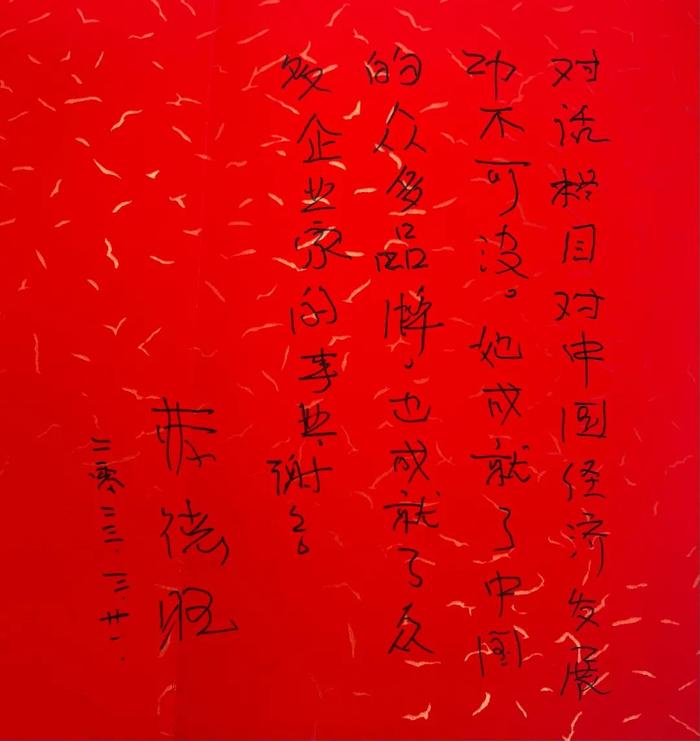 对话栏目对中国经济发展
功不可没。她成就了中国
的众多品牌。也成就了众
多企业家的事业.谢谢。
曹德旺
二零二三.三.廿一.